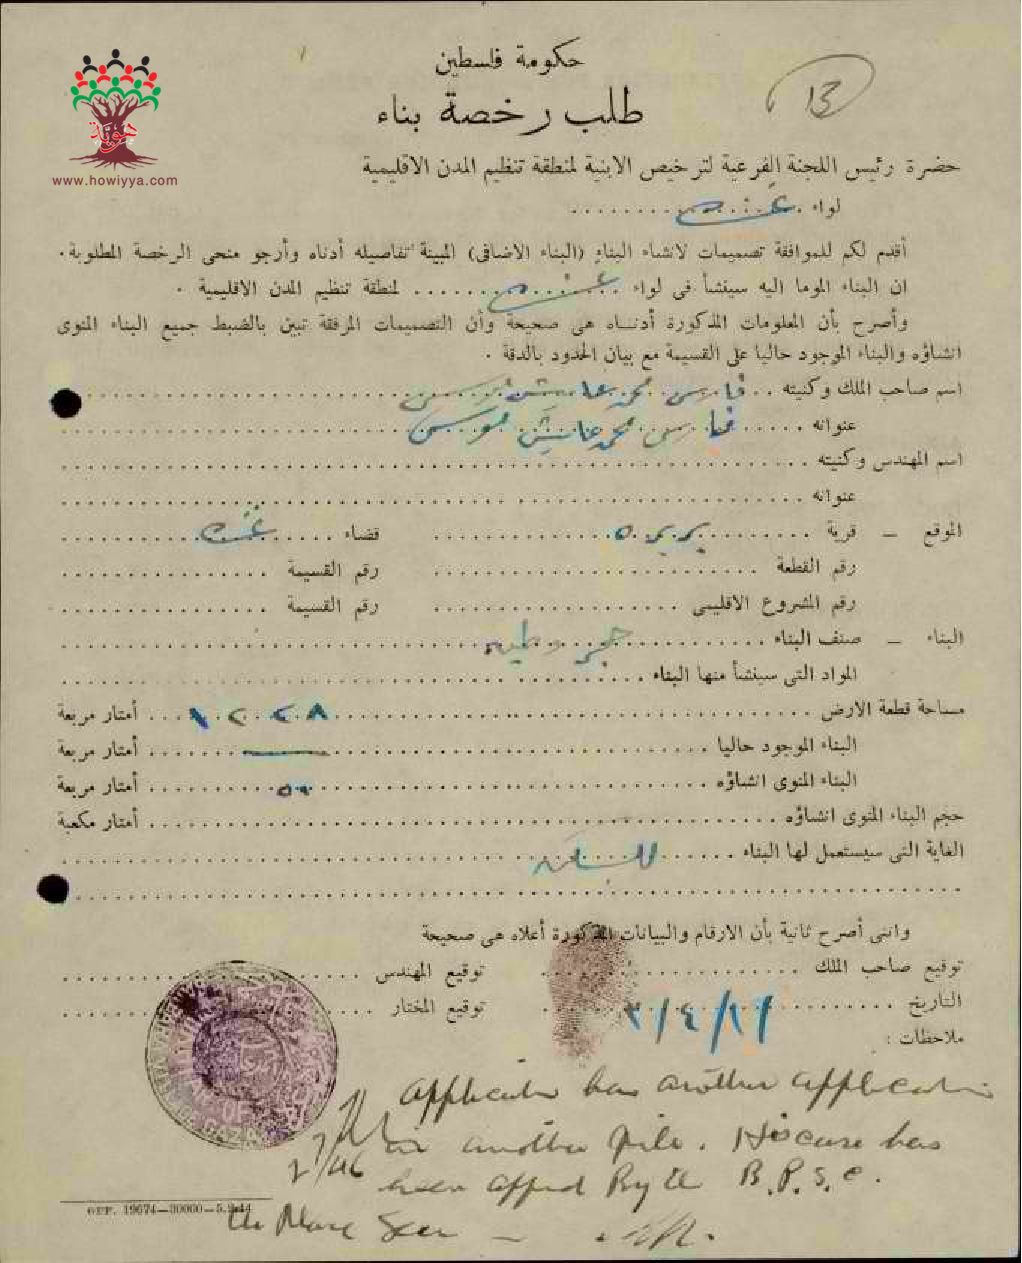 حكومة فلسطين
13
طلب رخصة بناء
هوية
www.howiyya.com
حضرة رئيس اللجنة الفرعية لترخيص الابنية لمنطقة تنظيم المدن الاقليمية
لواء غزه
أقدم لكم للموافقة تصميمات لانشاء البناء (البناء الاضافى) المبينة تفاصيله أدناه وأرجو منحى الرخصة المطلوبة.
ان البناء الموما اليه سينشأ فى لواء غزه لمنطقة تنظيم المدن الاقليمية .
وأصرح بأن المعلومات المذكورة أدناه هى صحيحة وأن التصميمات المرفقة تبين بالضبط جميع البناء المنوى
انشاؤه والبناء الموجود حاليا على القسيمة مع بيان الحدود بالدقة .
اسم صاحب الملك وكنيته فارس محمد عايش
عنوانه فارس محمد عايش
اسم المهندس وكنيته
عنوانه
الموقع – قرية بربره قضاء غزه
رقم القطعة رقم القسيمة
رقم المشروع الاقليمى رقم القسيمة
البناء – صنف البناء حجر وطينه
المواد التى سينشأ منها البناء
مساحة قطعة الارض أمتار مربعة
البناء الموجود حاليا — أمتار مربعة
البناء المنوى انشاؤه ٥٠ أمتار مربعة
حجم البناء المنوى انشاؤه أمتار مكعبة
الغاية التى سيستعمل لها البناء للسكن
وانى أصرح ثانية بأن الارقام والبيانات المذكورة أعلاه هى صحيحة
توقيع صاحب الملك توقيع المهندس
التاريخ توقيع المختار
ملاحظات :
Applicator has another application
in another file. His case has
been appred By the B.P.S.C.
2/46
GPP. 19674—30000—5.9.44